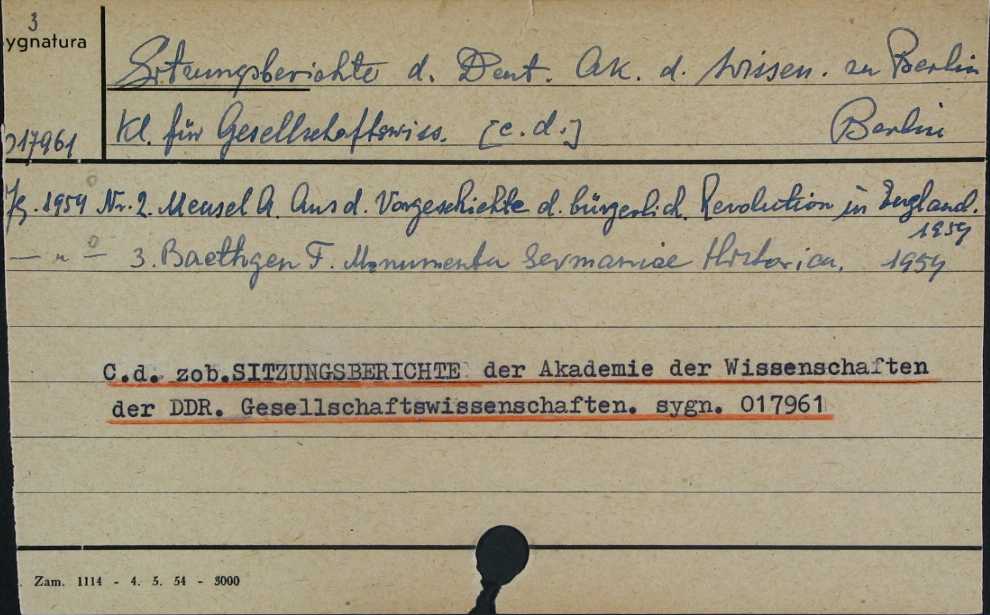 3
ygnatura
Sitzungsberichte d. Deut. Ak. d. Wissen. zu Berlin
Kl. für Gesellschaftswiss. [c.d.] Berlin
017961
Jg. 1959 Nr. 2. Meusel A. Aus d. Vorgeschichte d. bürgerlich. Revolution in England.
1959
— " — 3. Baethgen F. Monumenta Germaniae Historica. 1959
C.d. zob.SITZUNGSBERICHTE der Akademie der Wissenschaften
der DDR. Gesellschaftswissenschaften. sygn. 017961
Zam. 1114 - 4. 5. 54 - 3000